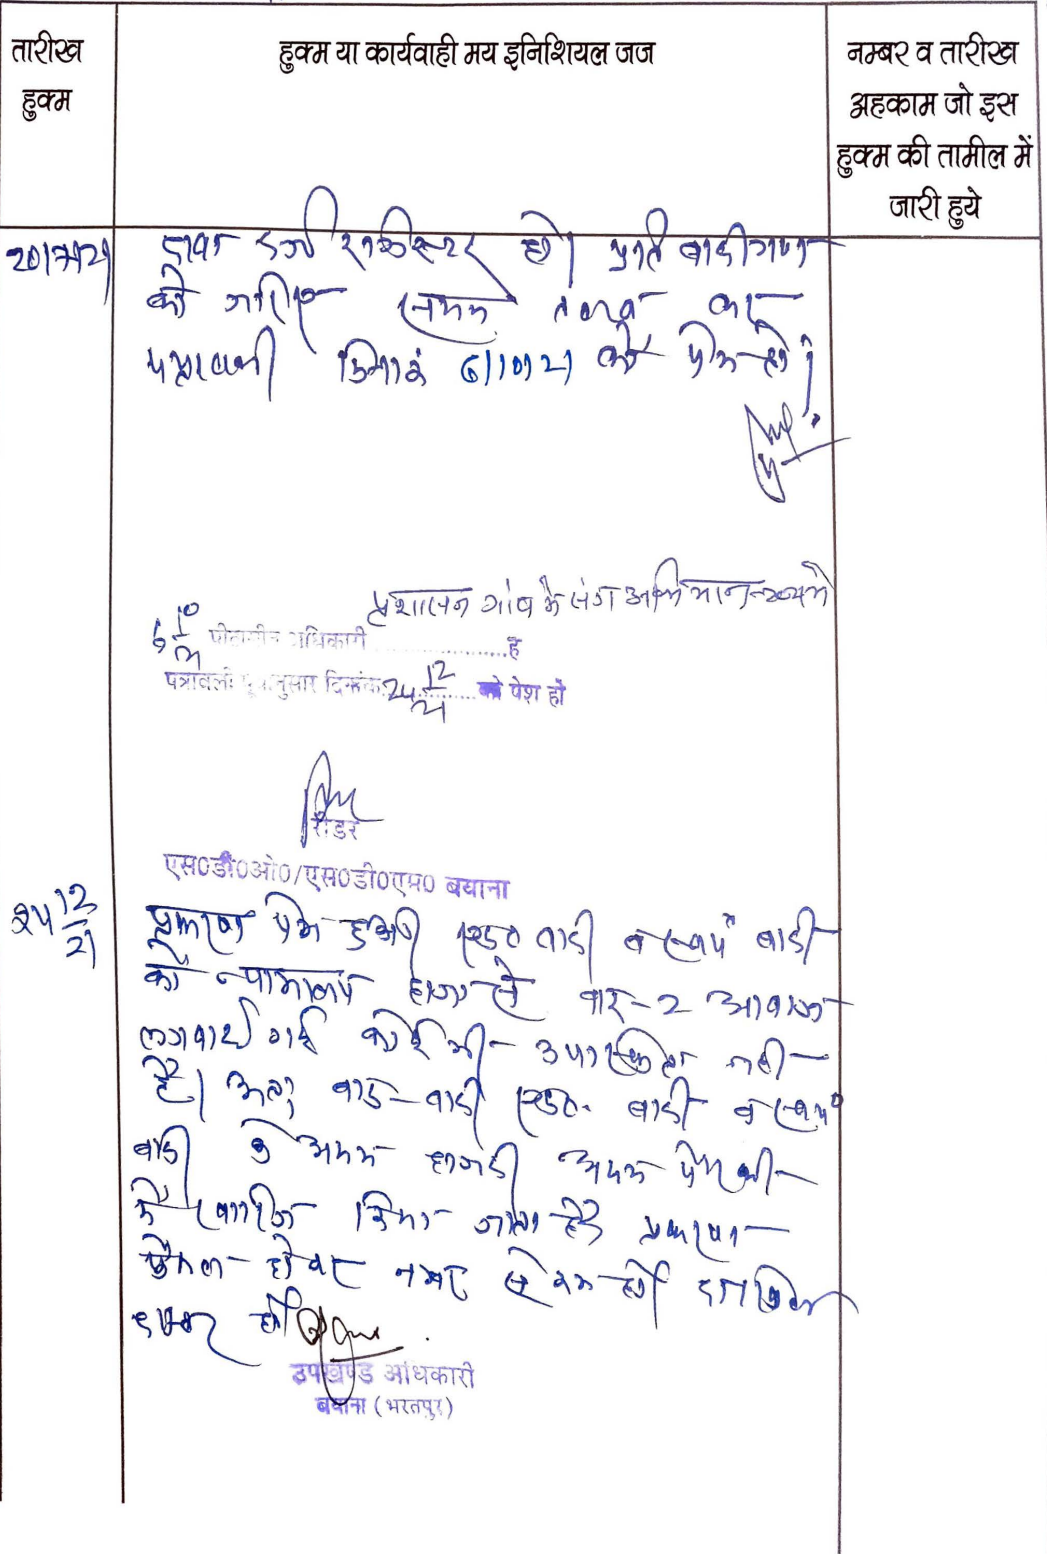 तारीख
हुक्म
हुक्म या कार्यवाही मय इनिशियल जज
नम्बर व तारीख
अहकाम जो इस
हुक्म की तामील में
जारी हुये
दावा दर्ज रजिस्टर हो। प्रतिवादीगण
को जरिए सम्मन तलब कर
पत्रावली दिनांक 6/10/21 को पेश हो।
प्रशासन गांव के संग अभियान
6/10/21 पीठासीन अधिकारी ............ है
पत्रावली पूर्वानुसार दिनांक 24 12/21 को पेश हो
रीडर
एस0डी0ओ0/एस0डी0एम0 बयाना
24 12/21
प्रकरण पेश हुआ। वादी व स्वयं वादी
को न्यायालय हाजा से बार-2 आवाज
लगवाई गई कोई भी उपस्थित नहीं
है। अतः वाद-वादी वादी व स्वयं
वादी के अदम हाजरी अदम पैरवी
में खारिज किया जाता है। प्रकरण
फैसल होकर नम्बर से कम हो दाखिल
दफ्तर हो
उपखण्ड अधिकारी
बयाना (भरतपुर)